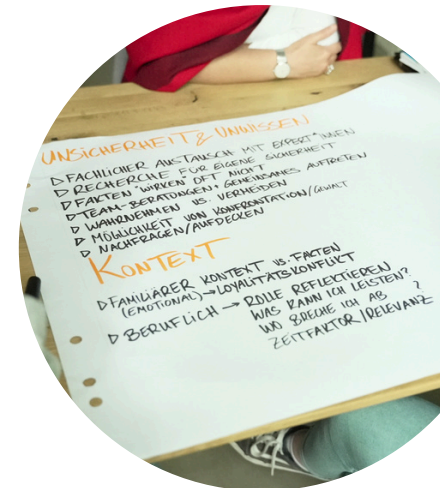 UNSICHERHEIT & UNWISSEN
▷ FACHLICHER AUSTAUSCH MIT EXPERT*INNEN
▷ RECHERCHE FÜR EIGENE SICHERHEIT
▷ FAKTEN "WIRKEN" OFT NICHT
▷ TEAM-BERATUNGEN + GEMEINSAMES AUFTRETEN
▷ WAHRNEHMEN VS. VERMEIDEN
▷ MÖGLICHKEIT VON KONFRONTATION/GEWALT
▷ NACHFRAGEN/AUFDECKEN
KONTEXT
▷ FAMILIÄRER KONTEXT VS. FAKTEN
(EMOTIONAL) → LOYALITÄTSKONFLIKT
▷ BERUFLICH → ROLLE REFLEKTIEREN
WAS KANN ICH LEISTEN?
WO BRECHE ICH AB ?
ZEITFAKTOR/RELEVANZ